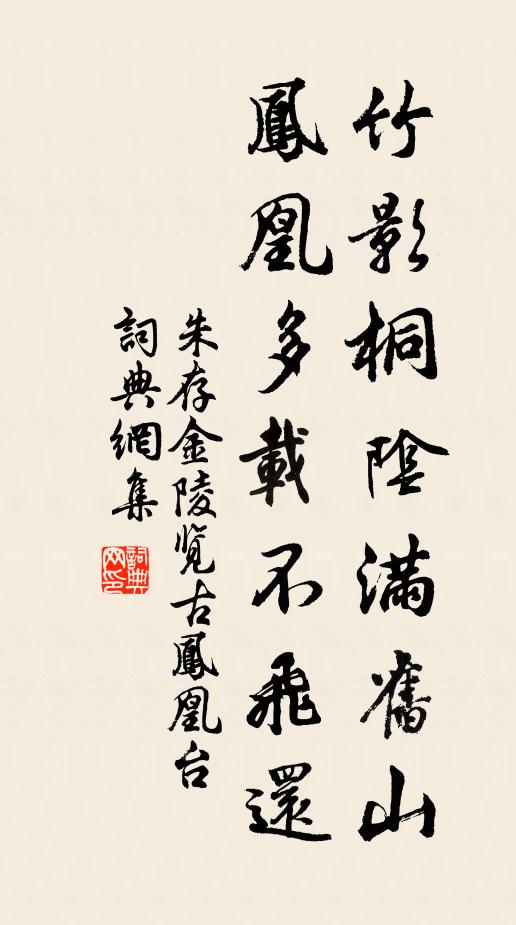 竹影桐陰滿舊山
鳳凰多載不飛還
朱存金陵览古鳳凰台
詞典網集
詞典網印